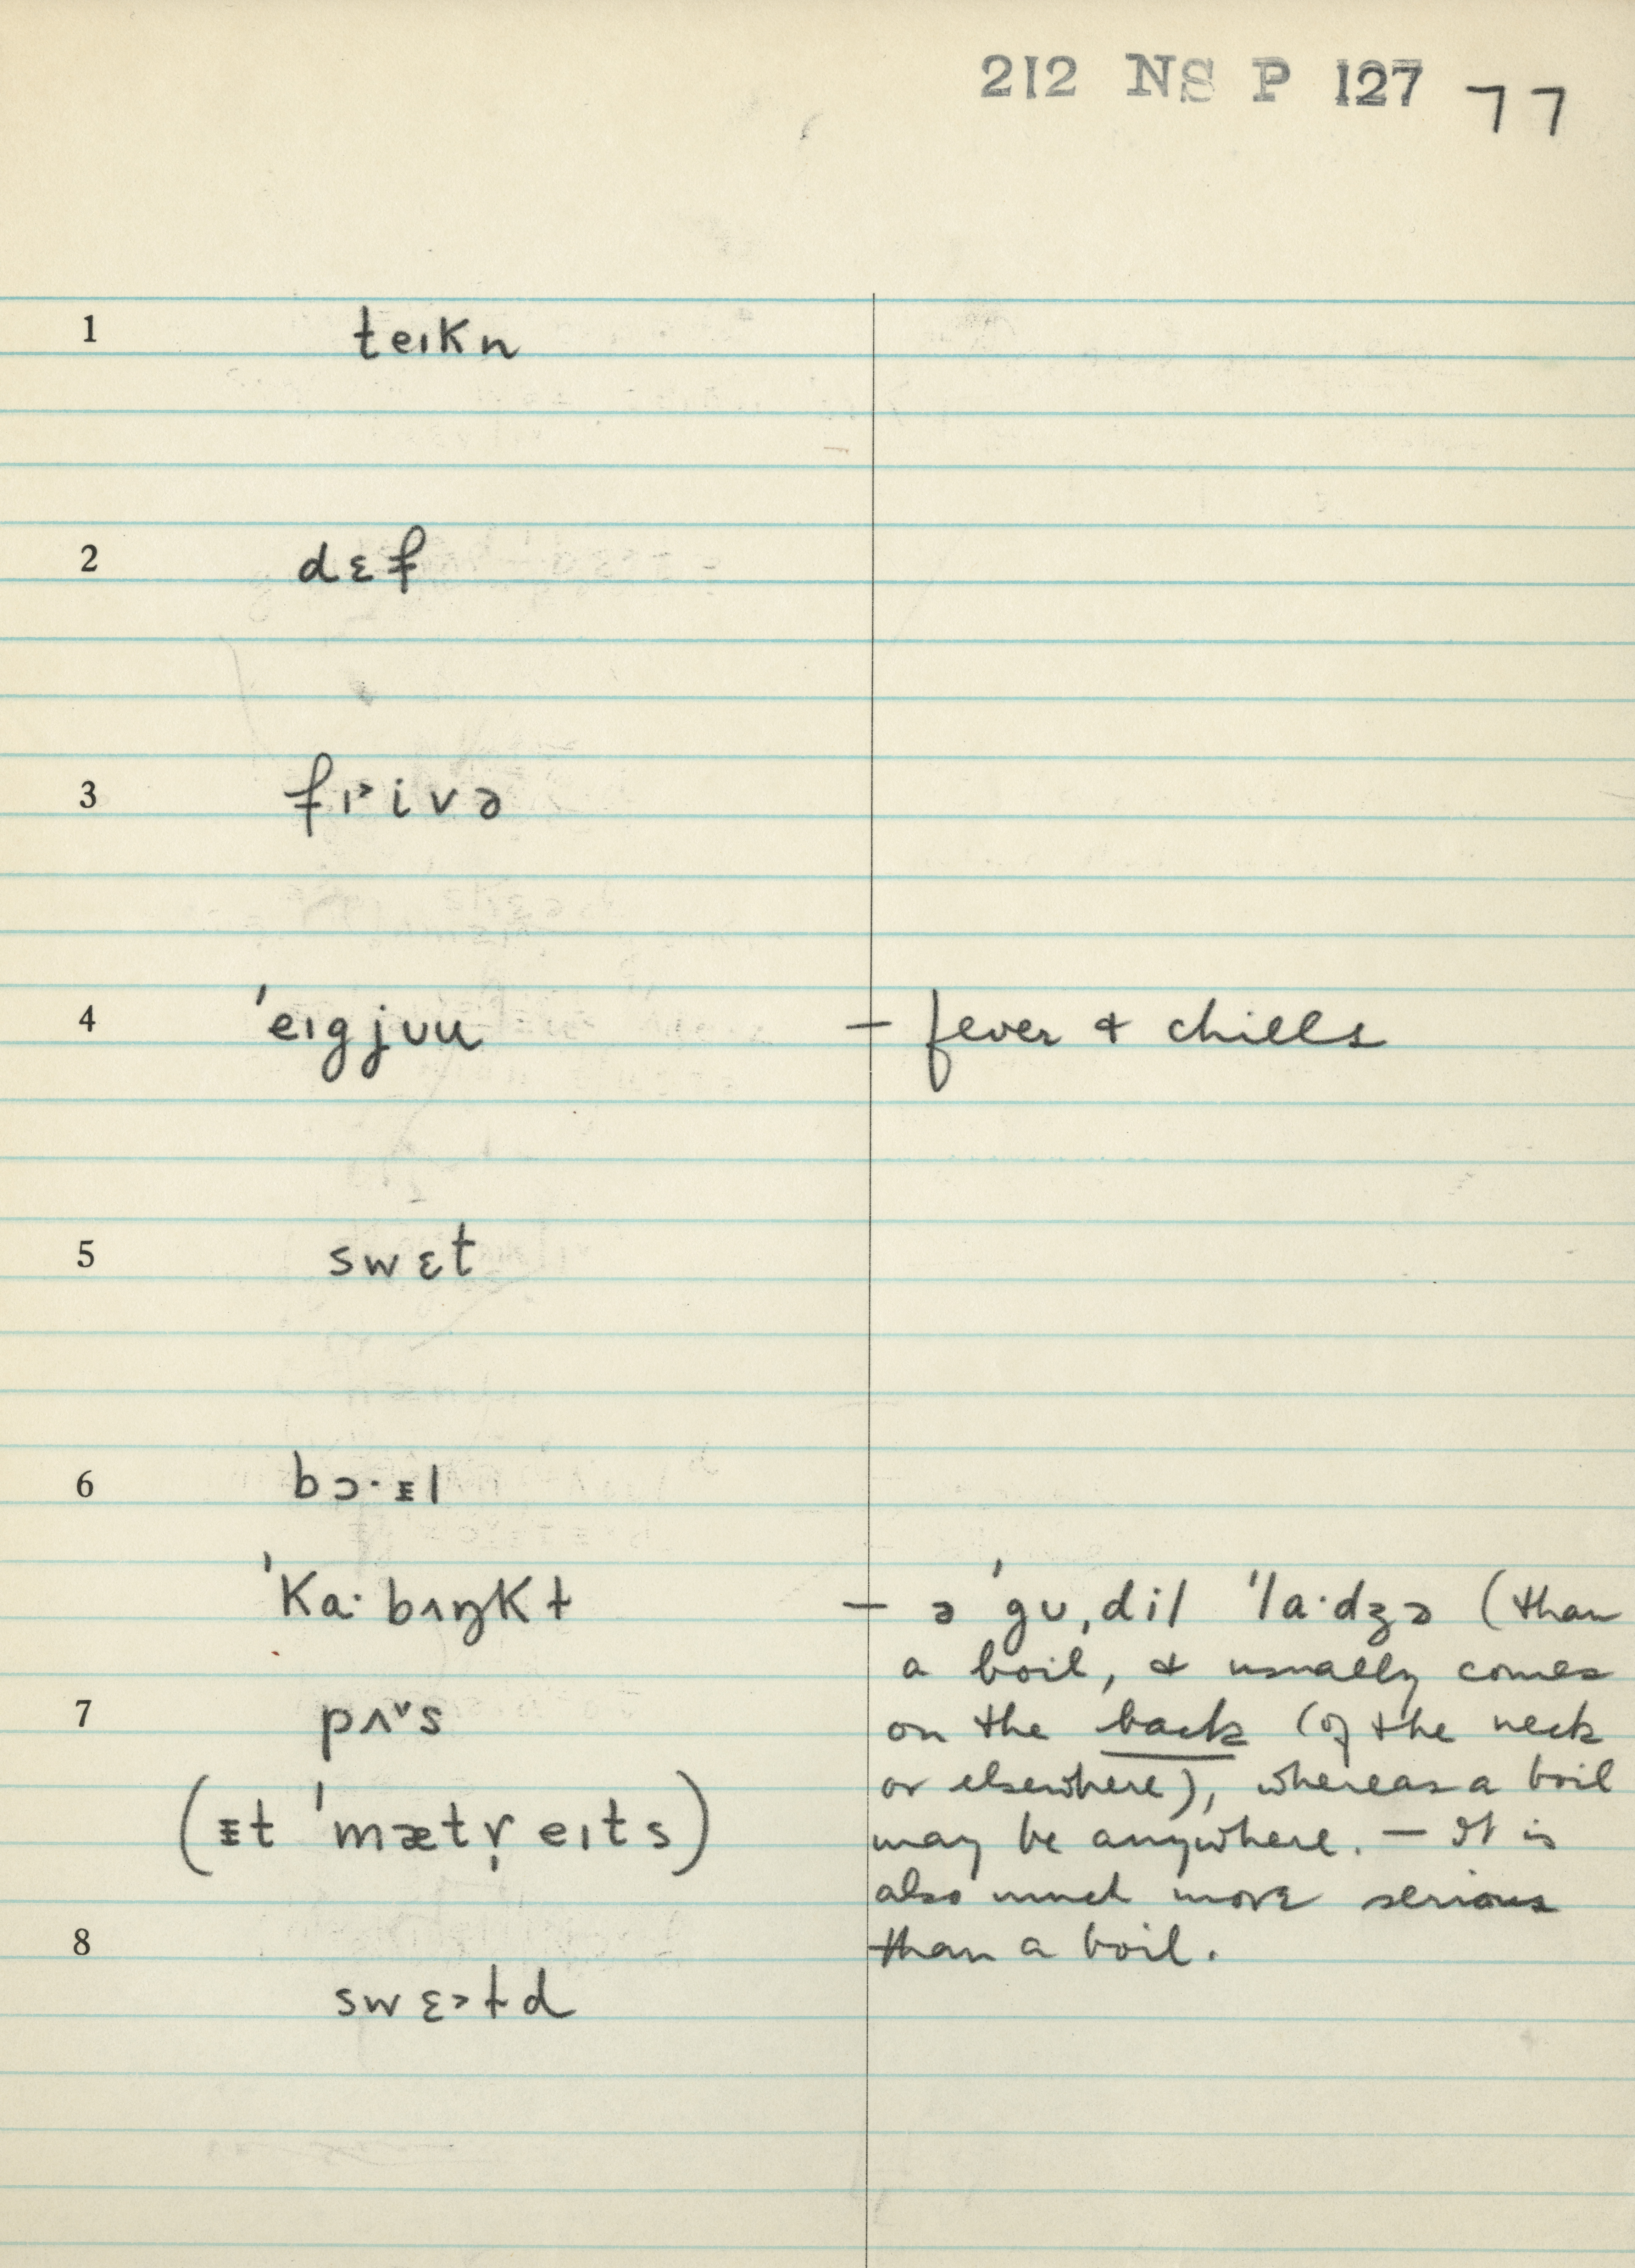 212 NS P 127 77
1 teɪkn
2 dɛf
3 fɪ˃ivə
4 ˈeɪgjʊu — fever & chills
5 swɛt
6 bɔ·ᵻl
ˈka·bʌŋkt — ə ˈgʊˌdil ˈla·dʒə (than
a boil, & usually comes
7 pʌ˅s on the back (of the neck
or elsewhere), whereas a boil
(ᵻt ˈmætṛ̌eɪts) may be anywhere. — It is
also much more serious
8 than a boil.
swɛ˃td